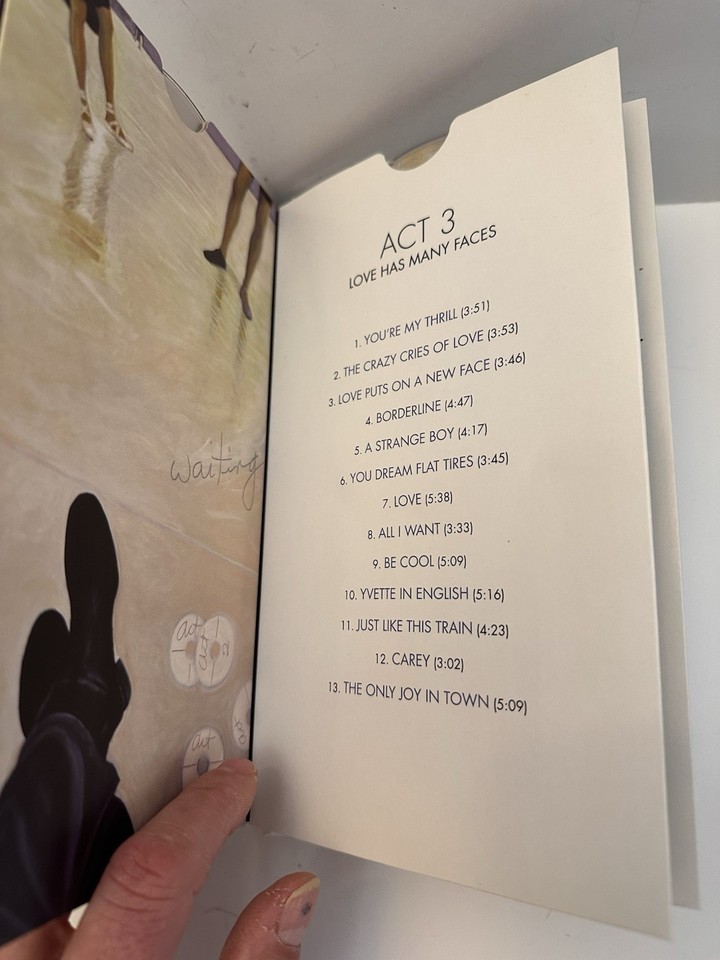 waiting
act
act
2
act
ACT 3
LOVE HAS MANY FACES
1. YOU'RE MY THRILL (3:51)
2. THE CRAZY CRIES OF LOVE (3:53)
3. LOVE PUTS ON A NEW FACE (3:46)
4. BORDERLINE (4:47)
5. A STRANGE BOY (4:17)
6. YOU DREAM FLAT TIRES (3:45)
7. LOVE (5:38)
8. ALL I WANT (3:33)
9. BE COOL (5:09)
10. YVETTE IN ENGLISH (5:16)
11. JUST LIKE THIS TRAIN (4:23)
12. CAREY (3:02)
13. THE ONLY JOY IN TOWN (5:09)